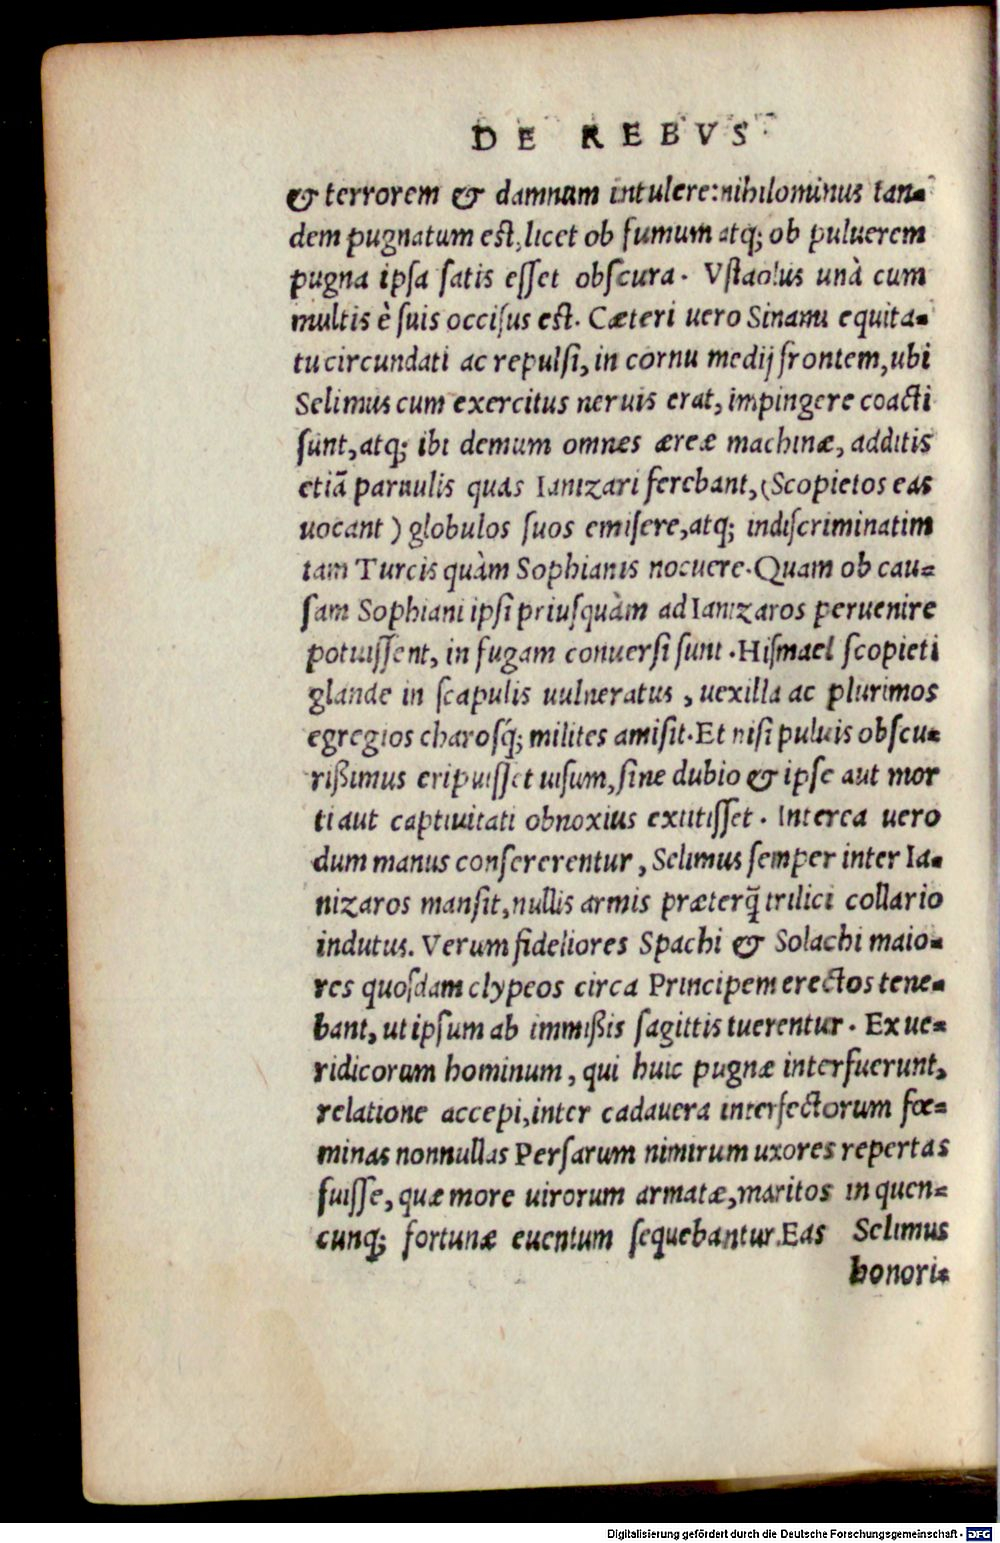 DE REBVS
& terrorem & damnum intulere: nihilominus tan-
dem pugnatum est, licet ob fumum atq; ob puluerem
pugna ipsa satis esset obscura. Vstaolus unà cum
multis è suis occisus est. Cæteri uero Sinami equita-
tu circundati ac repulsi, in cornu medij frontem, ubi
Selimus cum exercitus neruis erat, impingere coacti
sunt, atq; ibi demum omnes æreæ machinæ, additis
etiã paruulis quas Ianizari ferebant, (Scopietos eas
uocant) globulos suos emisere, atq; indiscriminatim
tam Turcis quàm Sophianis nocuere. Quam ob cau-
sam Sophiani ipsi priusquàm ad Ianizaros peruenire
potuissent, in fugam conuersi sunt. Hismael scopieti
glande in scapulis uulneratus, uexilla ac plurimos
egregios charosq́; milites amisit. Et nisi puluis obscu-
rißimus eripuisset uisum, sine dubio & ipse aut mor
ti aut captiuitati obnoxius extitisset. Interea uero
dum manus consererentur, Selimus semper inter Ia-
nizaros mansit, nullis armis præterq̃ trilici collario
indutus. Verum fideliores Spachi & Solachi maio-
res quosdam clypeos circa Principem erectos tene-
bant, ut ipsum ab immißis sagittis tuerentur. Ex ue-
ridicorum hominum, qui huic pugnæ interfuerunt,
relatione accepi, inter cadauera interfectorum fœ-
minas nonnullas Persarum nimirum uxores repertas
fuisse, quæ more uirorum armatæ, maritos in quen-
cunq; fortunæ euentum sequebantur. Eas Selimus
honori-
Digitalisierung gefördert durch die Deutsche Forschungsgemeinschaft - DFG